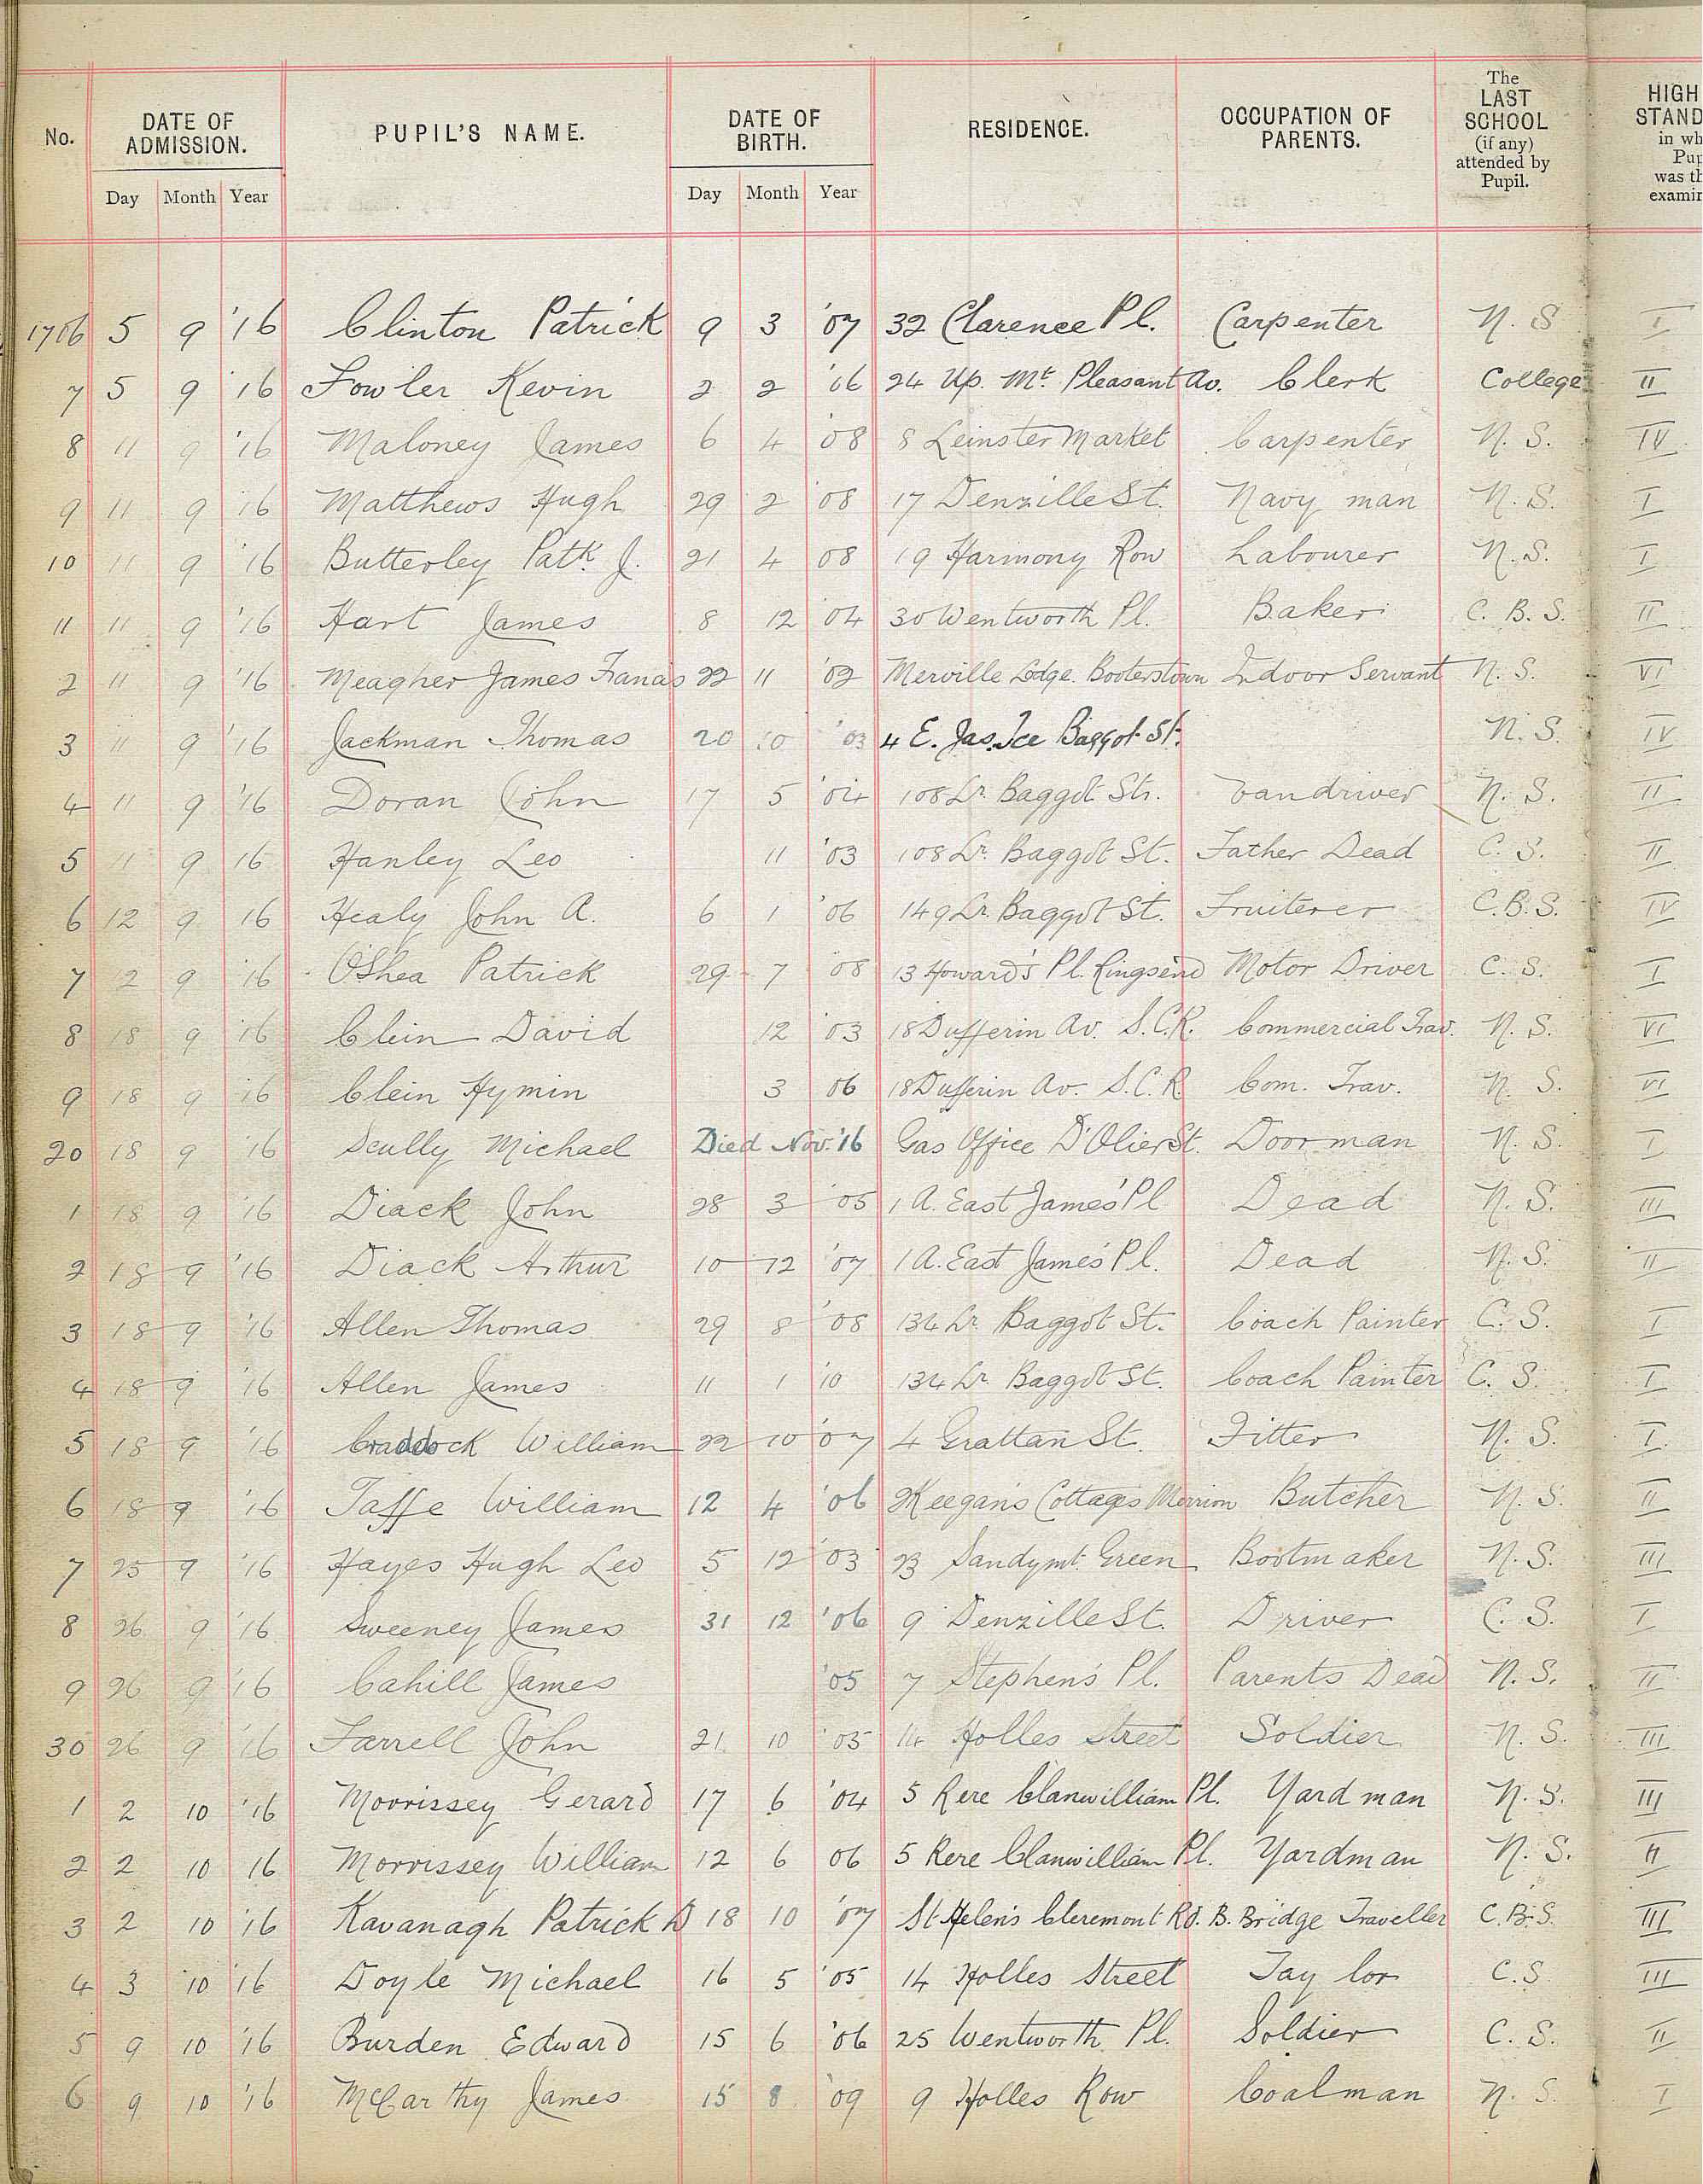 No. DATE OF ADMISSION. PUPIL'S NAME. DATE OF BIRTH. RESIDENCE. OCCUPATION OF PARENTS. The LAST SCHOOL (if any) attended by Pupil. HIGH STAND in wh Pup was th examin
Day Month Year Day Month Year
1706 5 9 '16 Clinton Patrick 9 3 '07 32 Clarence Pl. Carpenter N. S I
7 5 9 '16 Fowler Kevin 2 2 '06 24 Up. Mt. Pleasant Av. Clerk College II
8 11 9 '16 Maloney James 6 4 '08 8 Leinster Market Carpenter N. S. IV
9 11 9 '16 Matthews Hugh 29 2 '08 17 Denzille St. Navy man N. S. I
10 11 9 '16 Butterley Patk. J. 21 4 08 19 Harmony Row Labourer N. S. I
11 11 9 '16 Hart James 8 12 '04 30 Wentworth Pl. Baker C. B. S. II
2 11 9 '16 Meagher James Francis 22 11 '02 Merville Lodge. Booterstown Indoor Servant N. S. VI
3 11 9 '16 Jackman Thomas 20 10 '03 4 E. Jas. Baggot St. N. S. IV
4 11 9 '16 Doran John 17 5 '04 108 Lr. Baggot Str. Vandriver N. S. II
5 11 9 16 Hanley Leo 11 '03 108 Lr. Baggot St. Father Dead C. S. II
6 12 9 16 Healy John A. 6 1 '06 149 Lr. Baggot St. Fruiterer C.B.S. IV
7 12 9 '16 O'Shea Patrick 29 7 '08 13 Howard's Pl. Ringsend Motor Driver C. S. I
8 18 9 '16 Clein David 12 '03 18 Dufferin Av. S.C.R. Commercial Trav. N. S. VI
9 18 9 '16 Clein Hymin 3 06 18 Dufferin Av. S.C.R. Com. Trav. N. S. VI
20 18 9 '16 Scully Michael Died Nov. '16 Gas Office D'Olier St. Doorman N. S. I
1 18 9 '16 Diack John 28 3 '05 1 A. East James' Pl Dead N. S. III
2 18 9 '16 Diack Arthur 10 12 '07 1 A. East James' Pl. Dead N. S. II
3 18 9 '16 Allen Thomas 29 8 '08 134 Lr. Baggot St. Coach Painter C. S. I
4 18 9 '16 Allen James 11 1 '10 134 Lr. Baggot St. Coach Painter C. S. I
5 18 9 '16 Craddock William 22 10 '07 4 Grattan St. Fitter N. S. I
6 18 9 '16 Taffe William 12 4 '06 2 Keegan's Cottages Merrion Butcher N. S. II
7 25 9 '16 Hayes Hugh Leo 5 12 '03 23 Sandymt. Green Bootmaker N. S. III
8 26 9 '16 Sweeney James 31 12 '06 9 Denzille St. Driver C. S. I
9 26 9 '16 Cahill James '05 7 Stephen's Pl. Parents Dead N. S. II
30 26 9 '16 Farrell John 21 10 '05 14 Holles Street Soldier N. S. III
1 2 10 '16 Morrissey Gerard 17 6 '04 5 Rere Clanwilliam Pl. Yardman N. S. III
2 2 10 16 Morrissey William 12 6 06 5 Rere Clanwilliam Pl. Yardman N. S. II
3 2 10 '16 Kavanagh Patrick D 18 10 '07 St Helen's Cleremont Rd. B. Bridge Traveller C.B.S. III
4 3 10 '16 Doyle Michael 16 5 '05 14 Holles Street Taylor C. S. III
5 9 10 '16 Burden Edward 15 6 '06 25 Wentworth Pl. Soldier C. S. II
6 9 10 '16 McCarthy James 15 8 '09 9 Holles Row Coalman N. S. I